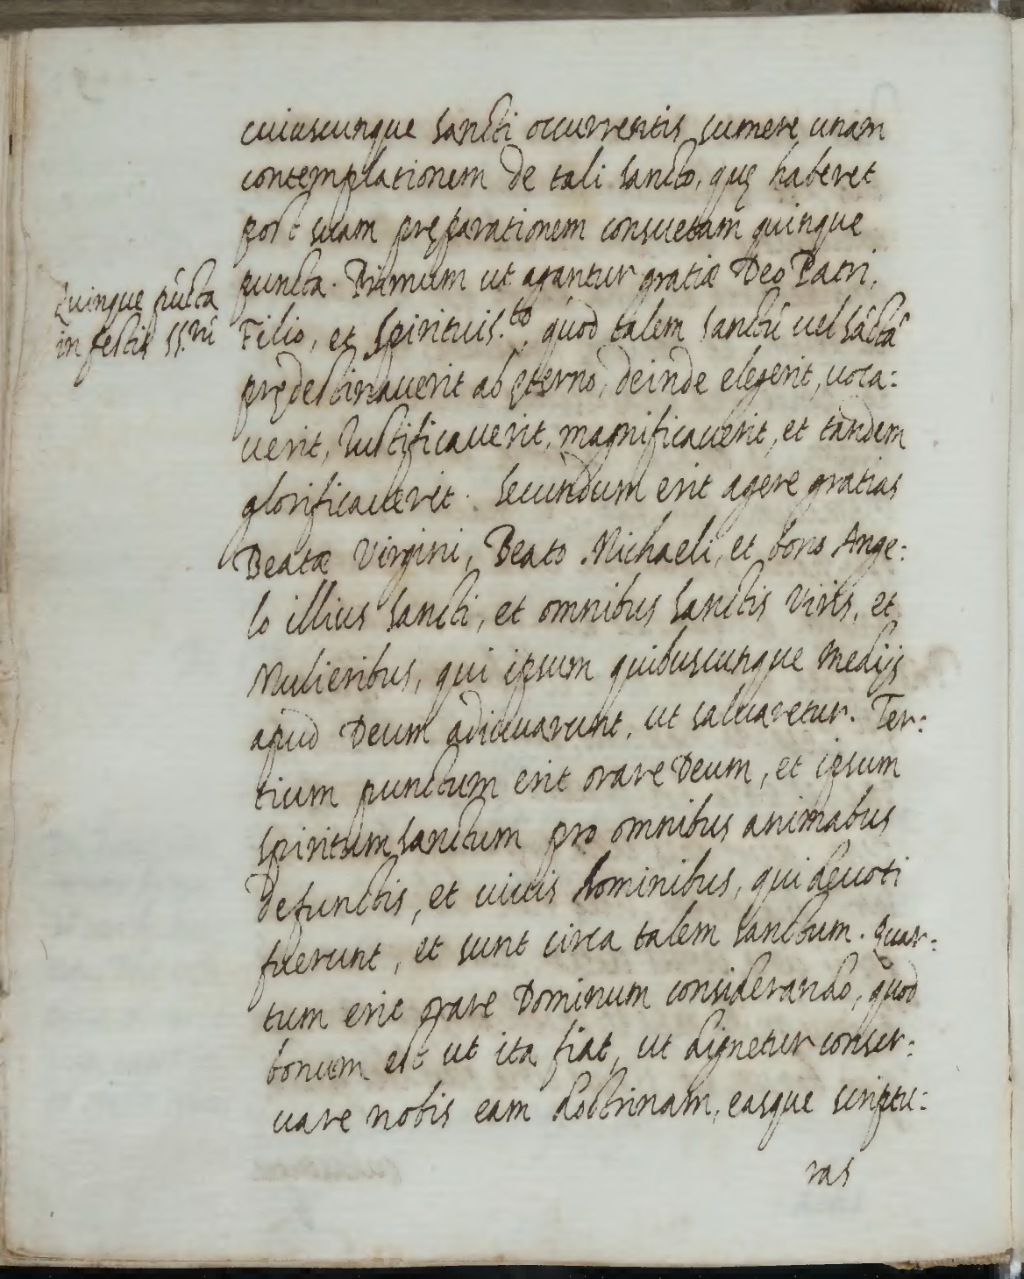 cuiuscunque sancti occurrentis, sumere unam
contemplationem de tali sancto, quę haberet
post suam pręparationem consuetam quinque
puncta. Primum ut agantur gratiæ Deo Patri,
Quinque pũcta
in festis SS.rũ
Filio, et spirituis.to, quod talem sanctũ uel sãctã
prędestinauerit ab ęterno, deinde elegerit, uoca:
uerit, Iustificauerit, magnificauerit, et tandem
glorificauerit. Secundum erit agere gratias
Beatæ Virgini, Beato Michaeli, et bono Ange:
lo illius sancti, et omnibus sanctis Viris, et
Mulieribus, qui ipsum quibuscunque medijs
apud Deum adiuuarunt, ut saluaretur. Ter:
tium punctum erit orare Deum, et ipsum
spiritum sanctum pro omnibus animabus
defunctis, et uiuis hominibus, qui deuoti
fuerunt, et sunt circa talem sanctum. Quar:
tum erit orare Dominum considerando, quod
bonum est ut ita fiat, ut dignetur conser:
uare nobis eam doctrinam, easque scriptu:
ras